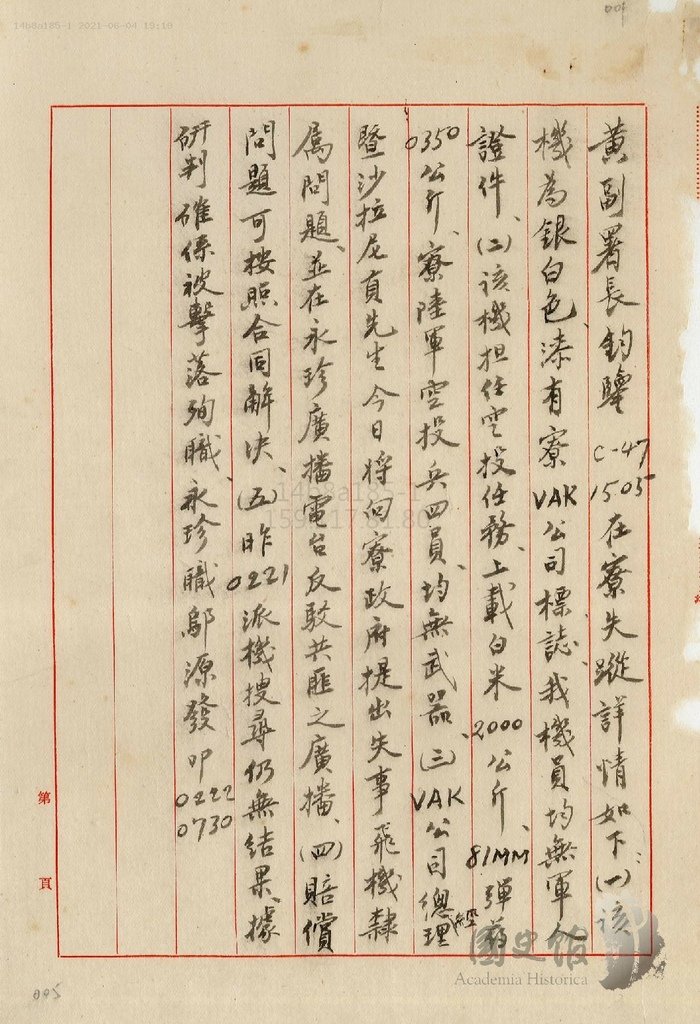 14b8a185-1 2021-06-04 19:19
黃副署長鈞鑒C-47 1505在寮失蹤詳情如下：(一)該
機為銀白色、漆有寮VAK公司標誌、我機員均無軍人
證件、(二)該機担任空投任務、上載白米2000公斤、81MM彈藥
0350公斤、寮陸軍空投兵四員、均無武器、(三)VAK公司總經理
暨沙拉尼貢先生今日將向寮政府提出失事飛機隸
屬問題、並在永珍廣播電台反駁共匪之廣播、(四)賠償
問題可按照合同解決、(五)昨0221派機搜尋仍無結果、據
研判確係被擊落殉職、永珍職鄔源發叩0222 0730
第 頁
國史館
Academia Historica
005